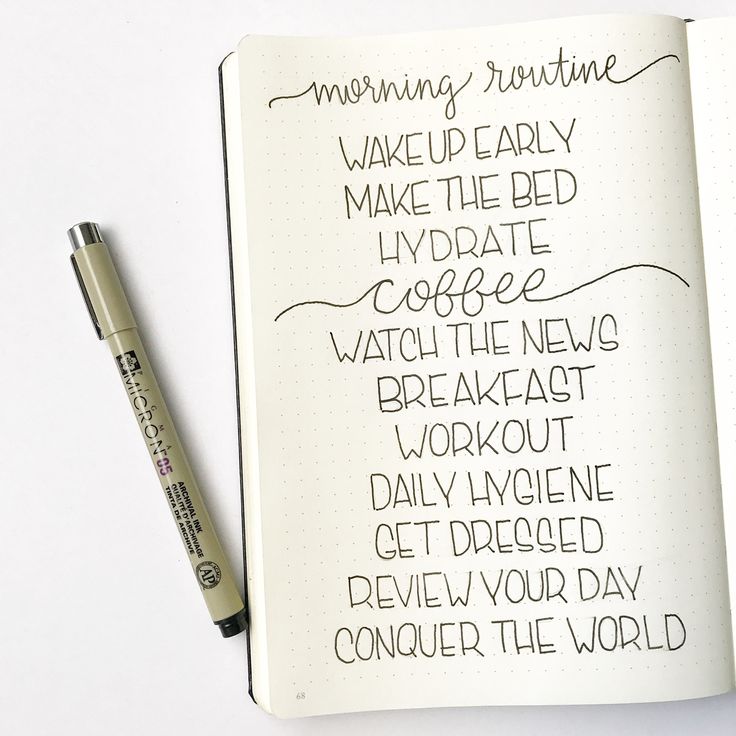 morning routine
WAKE UP EARLY
MAKE THE BED
HYDRATE
coffee
WATCH THE NEWS
BREAKFAST
WORKOUT
DAILY HYGIENE
GET DRESSED
REVIEW YOUR DAY
CONQUER THE WORLD
68
PIGMA
MICRON 05
ARCHIVAL INK
QUALITÉ D'ARCHIVAGE
TINTA DE ARCHIVE
AP